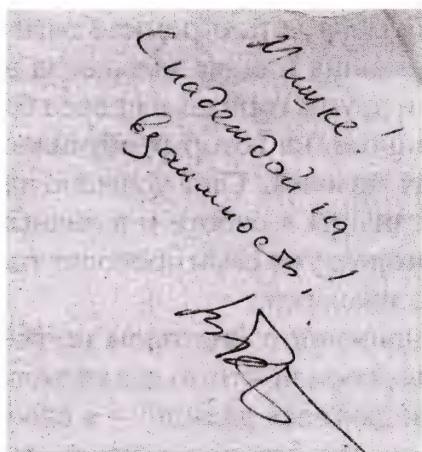 Мишке!
С надеждой на
взаимность!